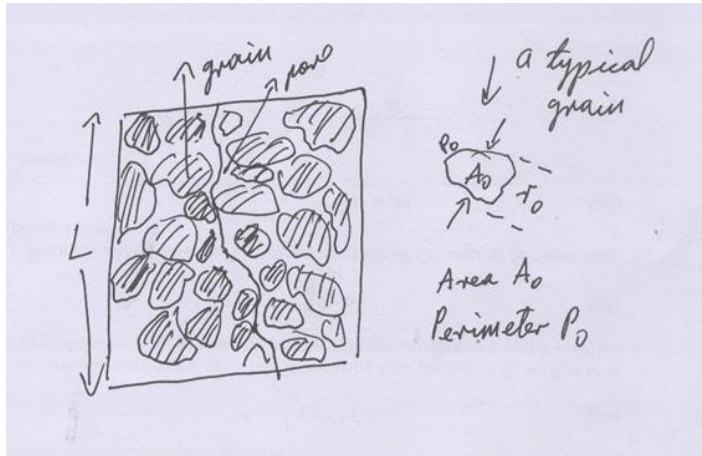 grain
pore
a typical
grain
P₀
A₀
r₀
L
Area A₀
Perimeter P₀